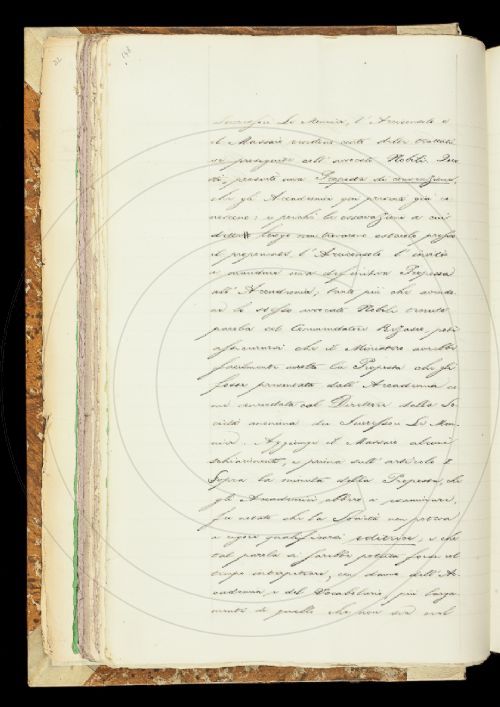 148
Successori Le Monnier, l'Arciconsolo e
il Massaio rendono conto delle trattative
proseguite coll'avvocato Nobili. Questi
presentò una Proposta di convenzione,
che gli Accademici già presenti già
; e perché le osservazioni a cui
dette luogo non trovarono ostacolo presso
il proponente, l'Arciconsolo l'invitò
a mandare una definitiva Proposta
all'Accademia; tanto più che avendo
lo stesso avvocato Nobili tenuto
parola col Commendatore poté
assicurarsi che il Ministero avrebbe
facilmente accolta la Proposta che gli
fosse presentata dall'Accademia
concordata col Direttore della So-
cietà anonima dei Successori Le Mon-
nier. Aggiunge il Massaio alcuni
schiarimenti, e prima sull'articolo
Sopra la minuta della Proposta, che
gli Accademici ebbero a esaminare,
fu notato che la Società non poteva
a rigore qualificarsi editrice, e che
tal parola si sarebbe potuta forse col
tempo interpetrare, con danno dell'Ac-
cademia e del Vocabolario, più larga-
mente di quello che non sia nel